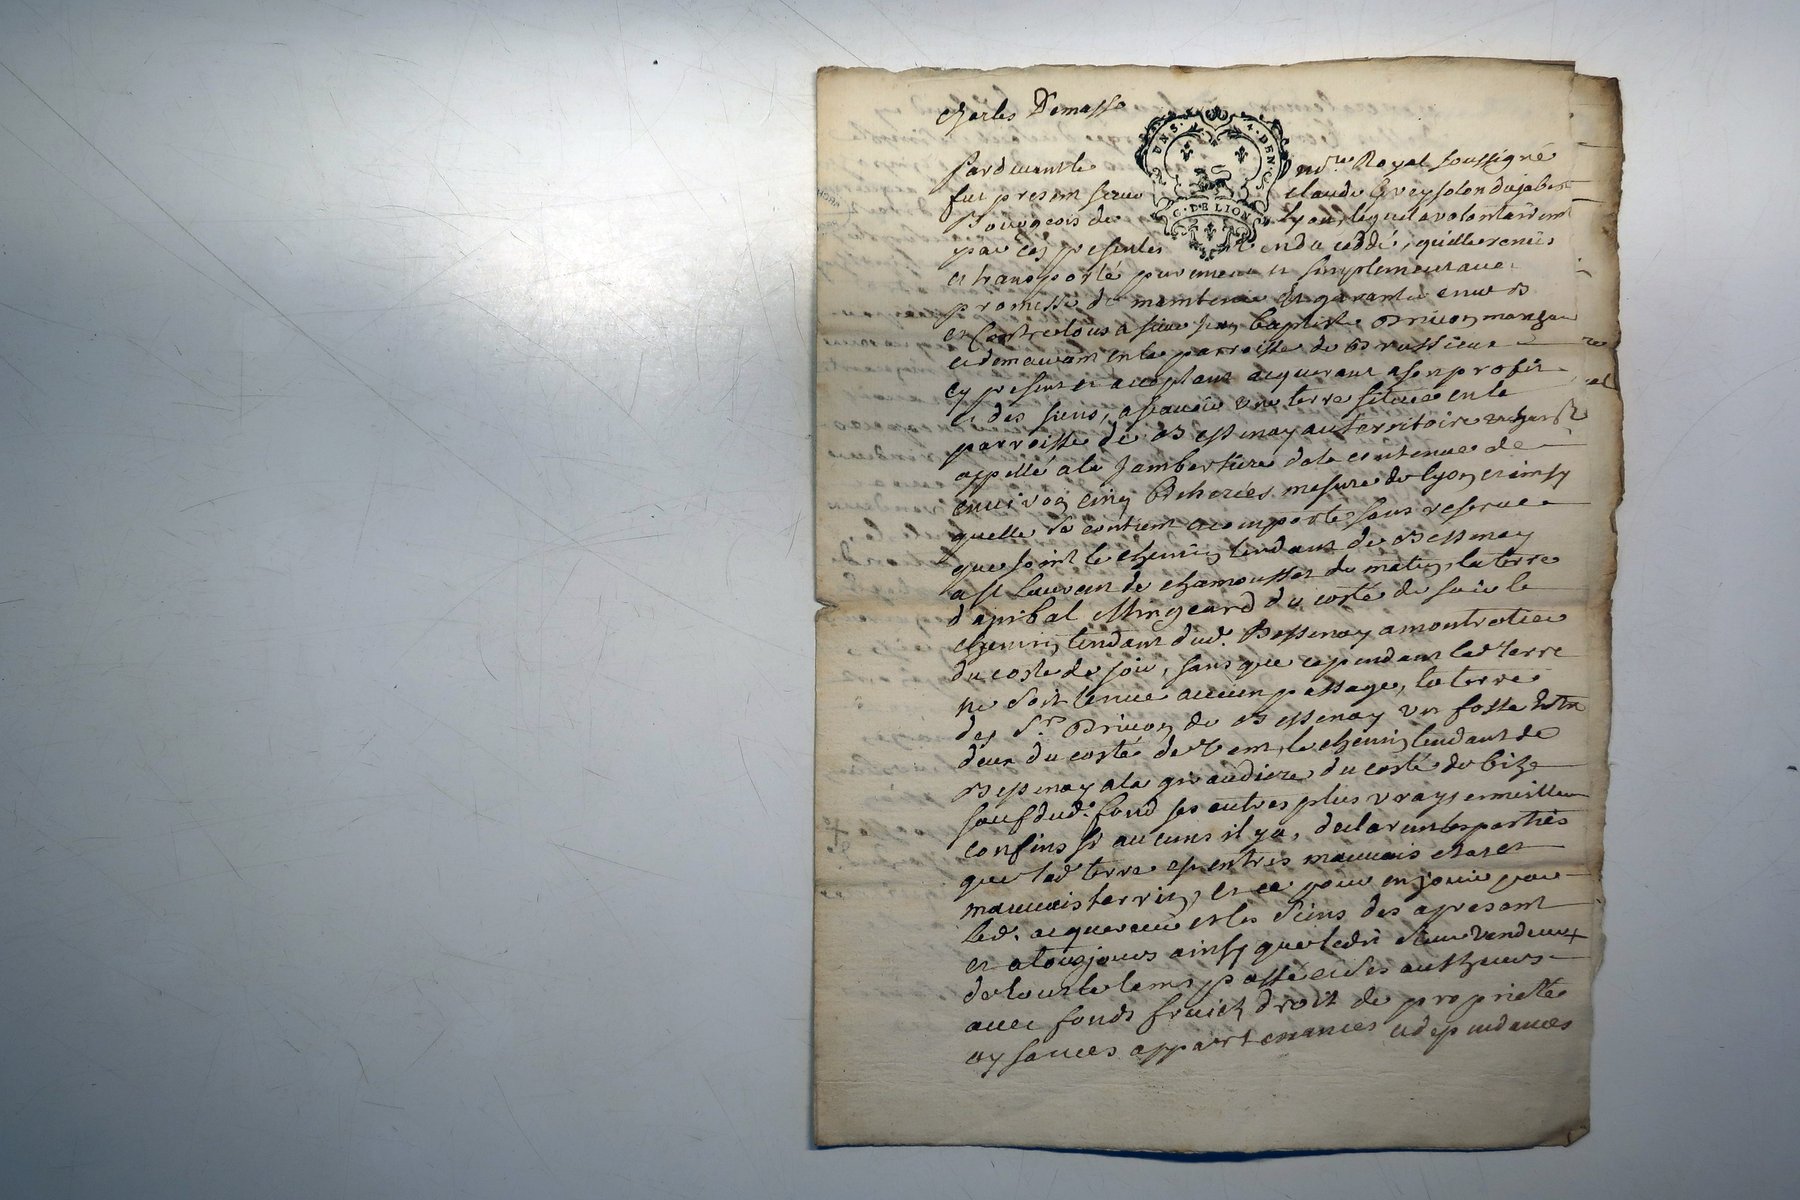 charles Demasso
UN S. 4. DEN
G. DE LION
Pardevant le no.re Royal soussigné
fut present sieur claude
Bourgeois de Lyon, lequel a volontairemt
par ces presentes vendu ceddé, quitte remis
et transporté purement et simplement avec
promesse de maintenir et garantir envers
et Contre tous a sieur Jean baptiste Bricoy
et demeurant en la parroisse de Brussieux
cy present et acceptant acquerant a son profit
et des siens, asscavoir une terre située en la
parroisse de Bessenay au territoire
appellé a la Jambertiere de la contenue de
environ cinq Bicherées mesure de lyon et ainsy
quelle se contient et comporte sans reserve
que joint le chemin tendant de Bessenay
a st Laurent de chamousset de matin, la terre
d'anibal du costé de soir le
chemin tendant dud. Bessenay a montrotier
du costé de soir, sans que cependant lad terre
ne soit tenue aucun passage, la terre
des Sr. Bricoy de Bessenay un fossé entre
deux du costé de vent, le chemin tendant de
Bessenay a la giraudiere du costé de bize
sauf dud. fond ses autres plus vrays et meilleurs
confins si aucuns il y a, declarant les parties
que lad terre est en tres mauvais etat et
mauvais terrin, et ce pour en jouir par
led. acquereur et les siens des apresant
et a tousjours ainsy que ledit sieur vendeur
de tout le tems passé et des autheurs
avec fonds fruicts droit de proprieté
aysances appartenances et dependances